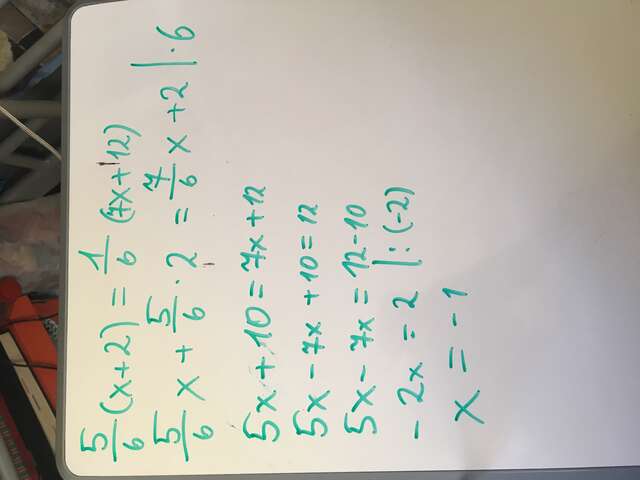 5/6 (x+2) = 1/6 (7x+12)
5/6 x + 5/6 · 2 = 7/6 x + 2 | · 6
5x + 10 = 7x + 12
5x - 7x + 10 = 12
5x - 7x = 12 - 10
- 2x = 2 | : (-2)
x = - 1